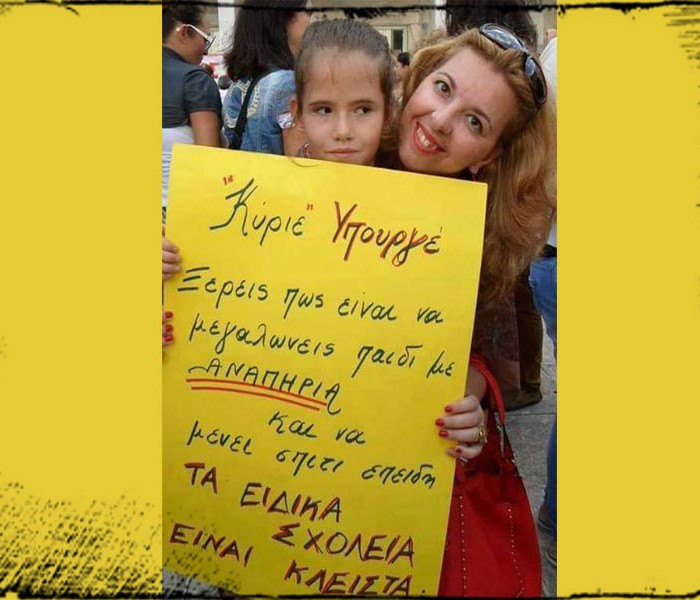 "Κύριε" Υπουργέ
Ξερεις πως είναι να
μεγαλωνεις παιδί με
ΑΝΑΠΗΡΙΑ
και να
μενει σπιτι επειδη
ΤΑ ΕΙΔΙΚΑ
ΣΧΟΛΕΙΑ
ΕΙΝΑΙ ΚΛΕΙΣΤΑ.